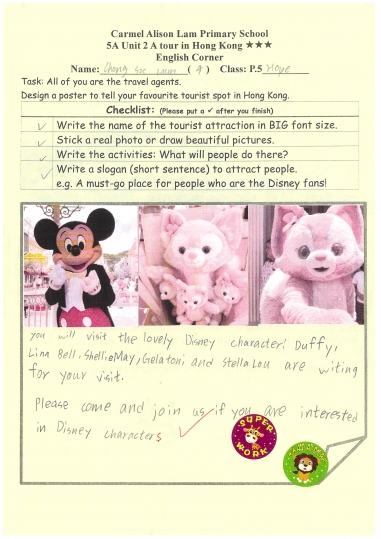 Carmel Alison Lam Primary School
5A Unit 2 A tour in Hong Kong ★★★
English Corner
Name: ( 4 ) Class: P.5 Hope
Task: All of you are the travel agents.
Design a poster to tell your favourite tourist spot in Hong Kong.
Checklist: (Please put a ✓ after you finish)
✓ Write the name of the tourist attraction in BIG font size.
✓ Stick a real photo or draw beautiful pictures.
✓ Write the activities: What will people do there?
✓ Write a slogan (short sentence) to attract people.
e.g. A must-go place for people who are the Disney fans!
you will visit the lovely Disney character! Duffy,
Lina Bell, ShellieMay, Gelatoni and StellaLou are witing
for your visit.
Please come and join us if you are interested
in Disney characters ✓
SUPER
WORK